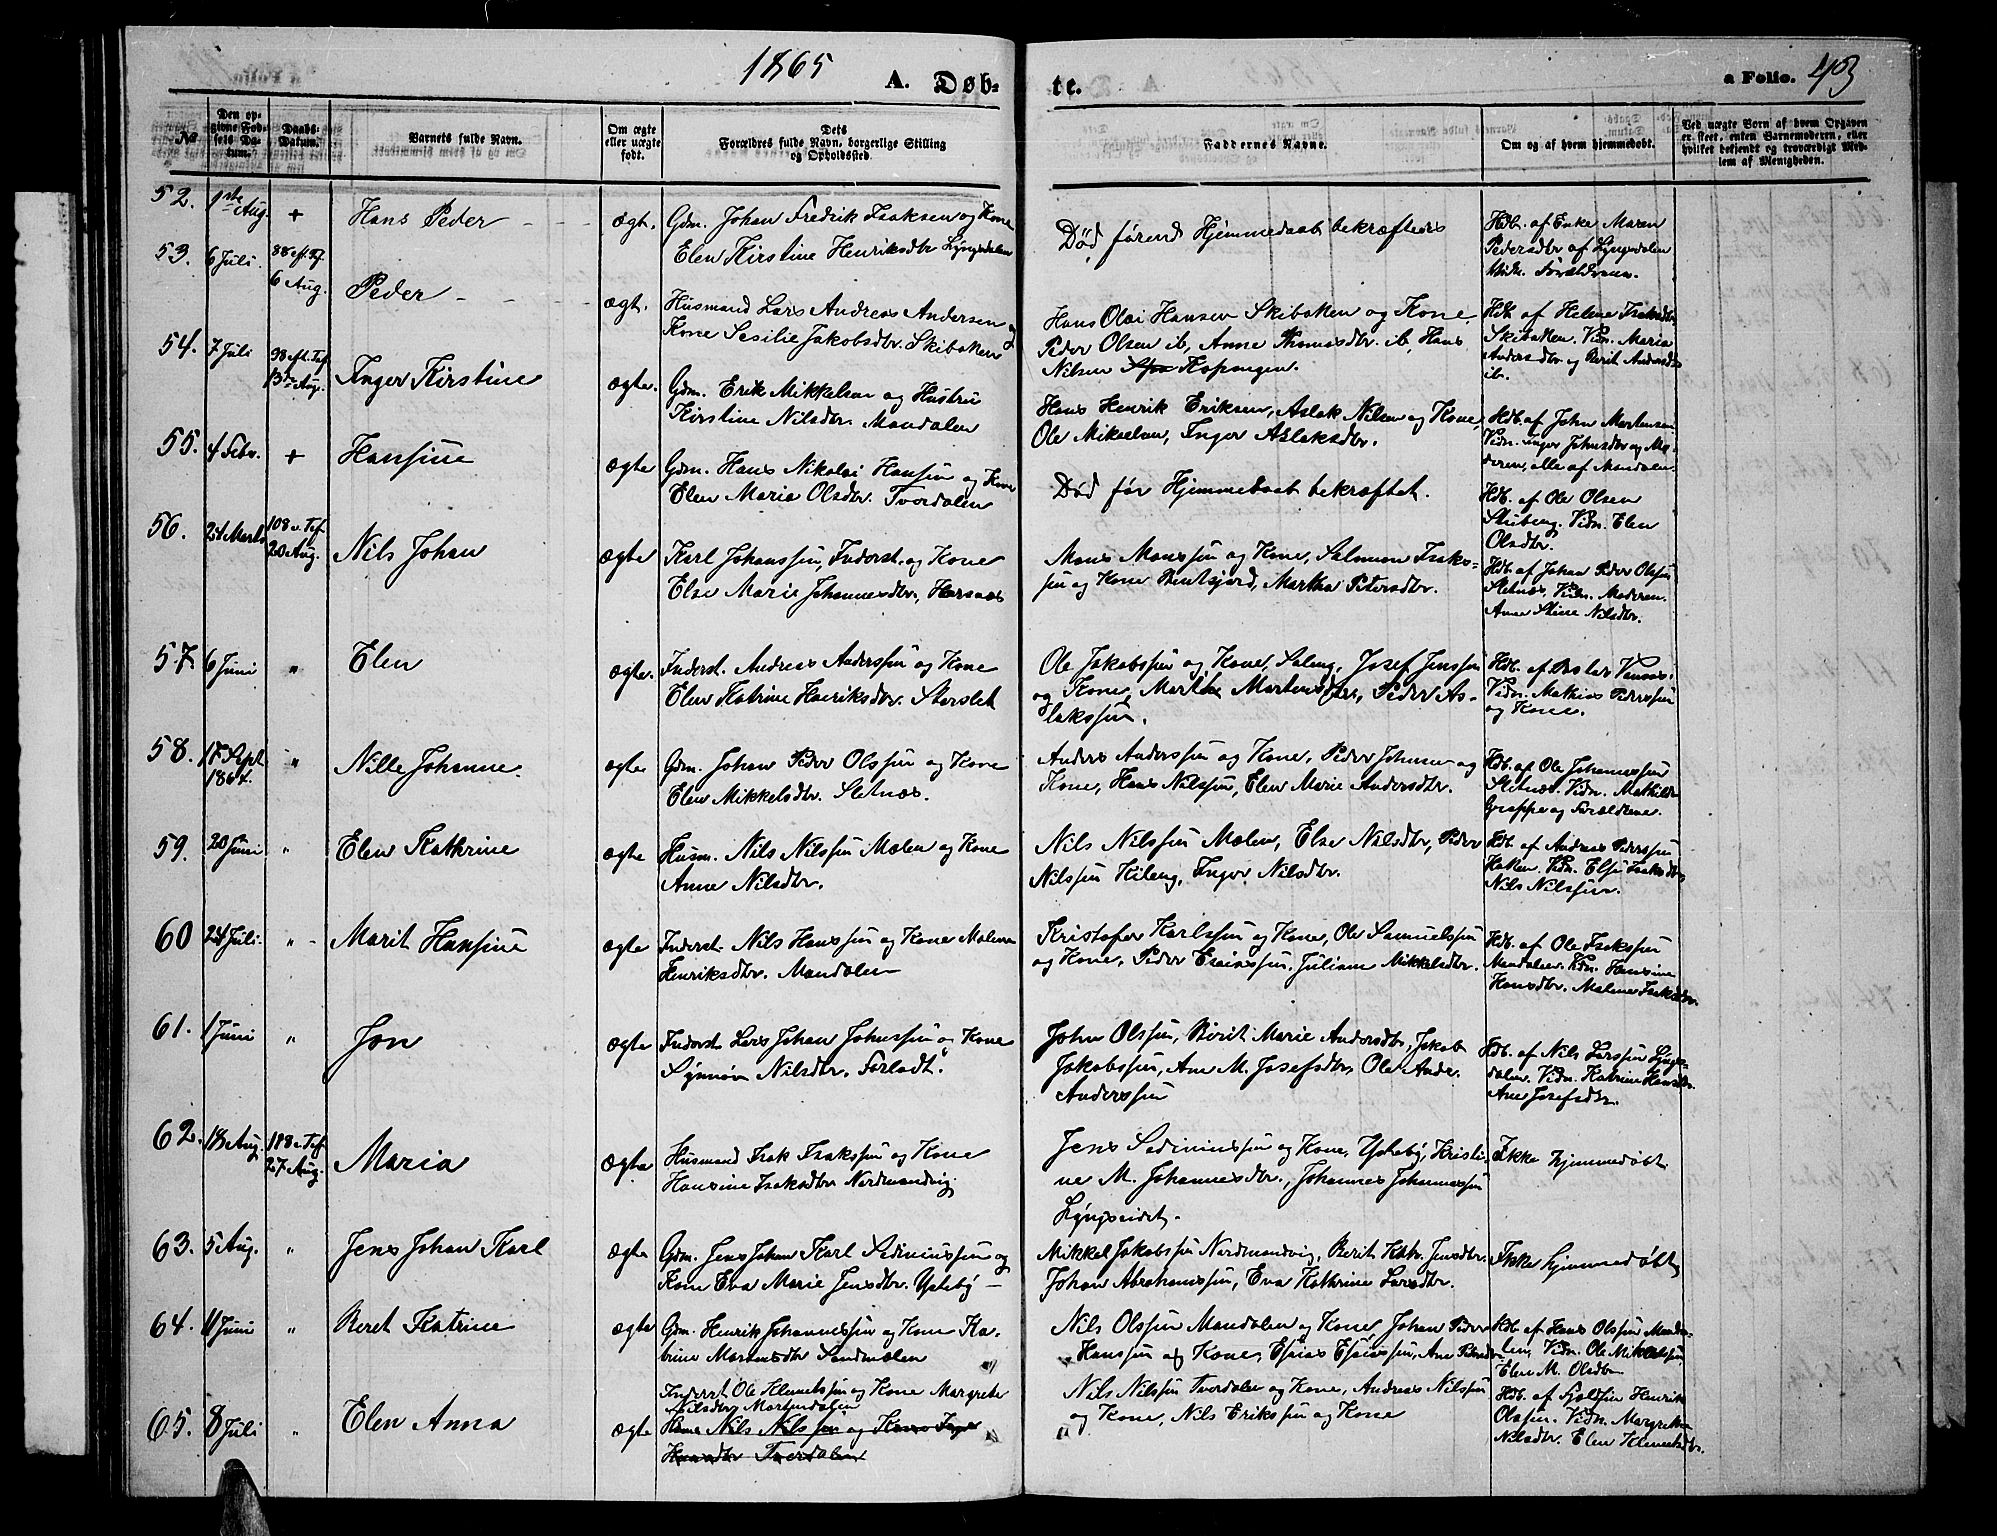 1865
A. Døb-
te.
a Folio. 43
No
Den op-
givne Fød-
sels Da-
tum.
Daabs-
Datum.
Barnets fulde Navn.
Om ægte
eller uægte
født.
Dets
Forældres fulde Navn, borgerlige Stilling
og Opholdssted.
Faddernes Navne.
Om og af hvem hjemmedøbt.
Ved uægte Børn af hvem Opgaven
er skeet, enten Barnemoderen, eller
hvilket bekjendt og troværdigt Med-
lem af Menigheden.
52. 1ste Aug. + Hans Peder ægte. Gdm. Johan Fredrik Isaksen og Kone
Elen Kirstine Henriksdtr Lyngsdalen
Død førend Hjemmedaab bekræftedes
Hdb. af Enke Maren
Pedersdtr af Lyngsdalen
Vidn. Forældrene.
53. 6 Juli. 8 S. eft. Tf.
6 Aug. Peder ægte. Husmand Lars Andreas Andersen og
Kone Sesilie Jakobsdtr. Skibotten
Hans Olai Hansen Skibotten og Kone,
Peder Olsen ib, Anne Thomasdtr. ib, Hans
Nilsen Kopangen.
Hdb. af Helene Isaksdtr
Skibotten. Vidn. Maria
Andersdtr og Berit Andersdtr
ib.
54. 7 Juli 9 S. eft. Tf.
13de Aug. Inger Kirstine ægte. Gdm. Erik Mikkelsen og Hustru
Kirstine Nilsdtr. Mandalen
Hans Henrik Eriksen, Aslak Nilsen og Kone,
Ole Mikkelsen, Inger Aslaksdtr.
Hdb. af John Mortensen
Vidn. Inger Johnsdtr og Mo-
deren, alle af Mandalen.
55. 4 Febr. + Hansine ægte Gdm. Hans Nikolai Hanssen og Kone
Elen Maria Olsdtr. Tverdalen
Død før Hjemmedaab bekræftet.
Hdb. af Ole Olsen
Stubeng. Vidn. Elen
Olsdtr.
56. 24 Marts 10 S. e. Tf
20 Aug. Nils Johan ægte Karl Johanssen, Inderst. og Kone
Else Marie Johannesdtr., Horsnæs
Mons Monssen og Kone, Salomon Isaks-
sen og Kone Bentsjord, Martha Petersdtr.
Hdb. af Johan Peder Olssen
Sletnæs, Vidn. Moderen.
Anne Stine Nilsdtr.
57. 6 Juni " Elen ægte. Inderst. Andreas Anderssen og Kone
Elen Katrine Henriksdtr. Storslet
Ole Jakobssen og Kone, Saleng, Josef Jenssen
og Kone, Marthe Mortensdtr, Peder As-
lakssen.
Vidn. Mathias Pederssen
og Kone.
58. 17 Sept
1864. " Nille Johanne. ægte Gdm. Johan Peder Olssen og Kone
Elen Mikkelsdtr. Sletnæs.
Anders Anderssen og Kone, Peder Johnsen og
Kone, Hans Nilssen, Elen Marie Andersdtr.
Hdb. af Ole Johannessen
Sletnæs. Vidn. Mathilde
Grappe og Forældrene.
59. 20 Juni " Elen Kathrine ægte Husm. Nils Nilssen Mælen og Kone
Anne Nilsdtr.
Nils Nilssen Mælen, Else Nilsdtr, Peder
Nilssen Kileng, Inger Nilsdtr.
Hdb. af Andreas Pederssen
Vidn. Else Isaksdtr
Nils Nilssen.
60 24 Juli. " Marit Hansine ægte Inderst. Nils Hanssen og Kone Malene
Henriksdtr. Mandalen
Kristofer Karlssen og Kone, Ole Samuelssen
og Kone, Peder Esaiassen, Juliane Mikkelsdtr.
Hdb. af Ole Isakssen
Mandalen. Vidn. Hansine
Hansdtr. Malene Isaksdtr.
61. 1 Juni " Jon ægte Inderst. Lars Johan Johnssen og Kone
Synnøv Nilsdtr. Forladt.
John Olssen, Berit Marie Andersdtr, Jakob
Jakobssen, Ane M. Josefsdtr, Ole Andr.
Anderssen
Hdb. af Nils Larssen Lyngs-
dalen. Vidn. Katrine Hansdtr.
Ane Josefsdtr.
62. 18 Aug. 11 S. e. Tf
27 Aug. Maria ægte Husmand Isak Isakssen og Kone
Hansine Isaksdtr Nordmandvig.
Jens Sediniussen og Kone, Ysteby, Kristi-
ne M. Johannesdtr., Johannes Johannessen
Lyngseidet.
Ikke hjemmedøbt
63. 5 Aug. " Jens Johan Karl ægte Gdm. Jens Johan Karl Sediniussen og
Kone Eva Marie Jensdtr. Ysteby
Mikkel Jakobssen Nordmandvig, Berit Katr. Jensdtr.
Johan Abrahamssen, Eva Kathrine Larsdtr.
Ikke hjemmedøbt
64. 11 Juni " Beret Katrine ægte Gdm. Henrik Johannessen og Kone Ka-
trine Mortensdtr Sandmælen
Nils Olssen Mandalen og Kone Johan Peder
Hanssen og Kone, Esaias Esaiassen, Ane Pedersdtr
Hdb. af Hans Olssen Manda-
len, Vidn. Ole Mikkelssen
Elen M. Olsdtr
65. 8 Juli " Elen Anna ægte Inderst Ole Klemetssen og Kone Margrete
Nilsdtr Mortendalen
Nils Nilssen og Kone Inger
Hansdtr Tverdalen
Nils Nilssen Tverdalen og Kone, Andreas Nilssen
og Kone, Nils Erikssen og Kone
Hdb. af Henrik
Olssen. Vidn. Margrethe
Nilsdtr. Elen Klemetsdtr.